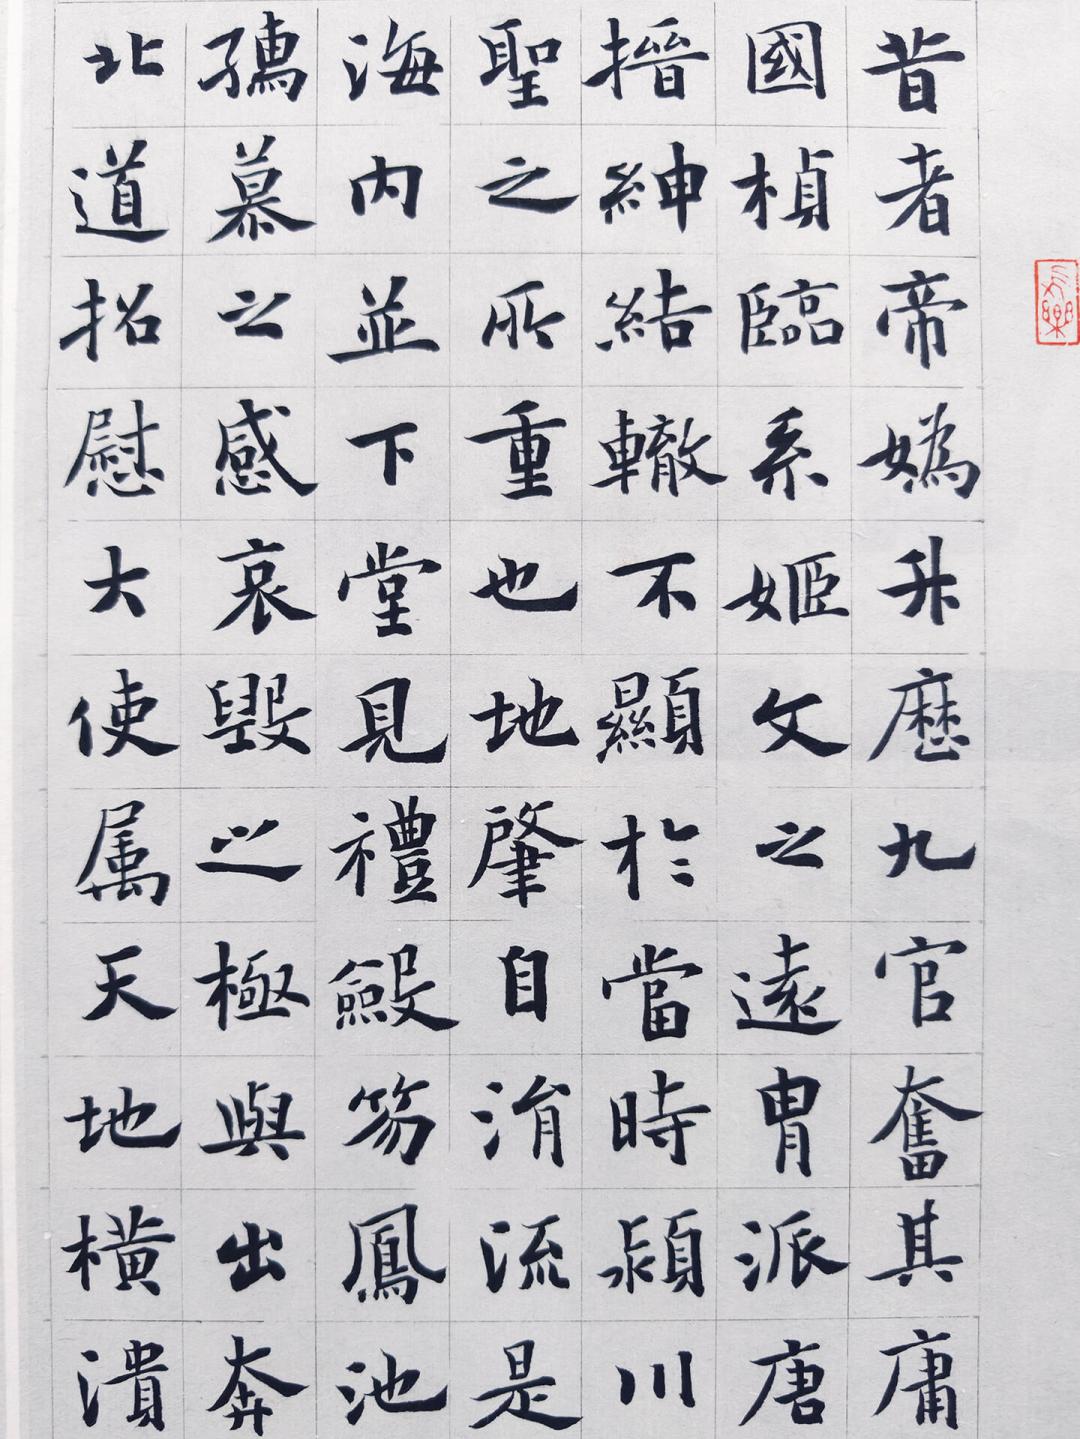 昔者帝媯升歷九官奮其庸
國楨臨系姬文之遠胄派唐
搢紳結轍不顯於當時潁川
聖之所重也地肇自洧流是
海內並下堂見禮斂笏鳳池
孺慕之感哀毀之極與出奔
北道招慰大使属天地橫潰